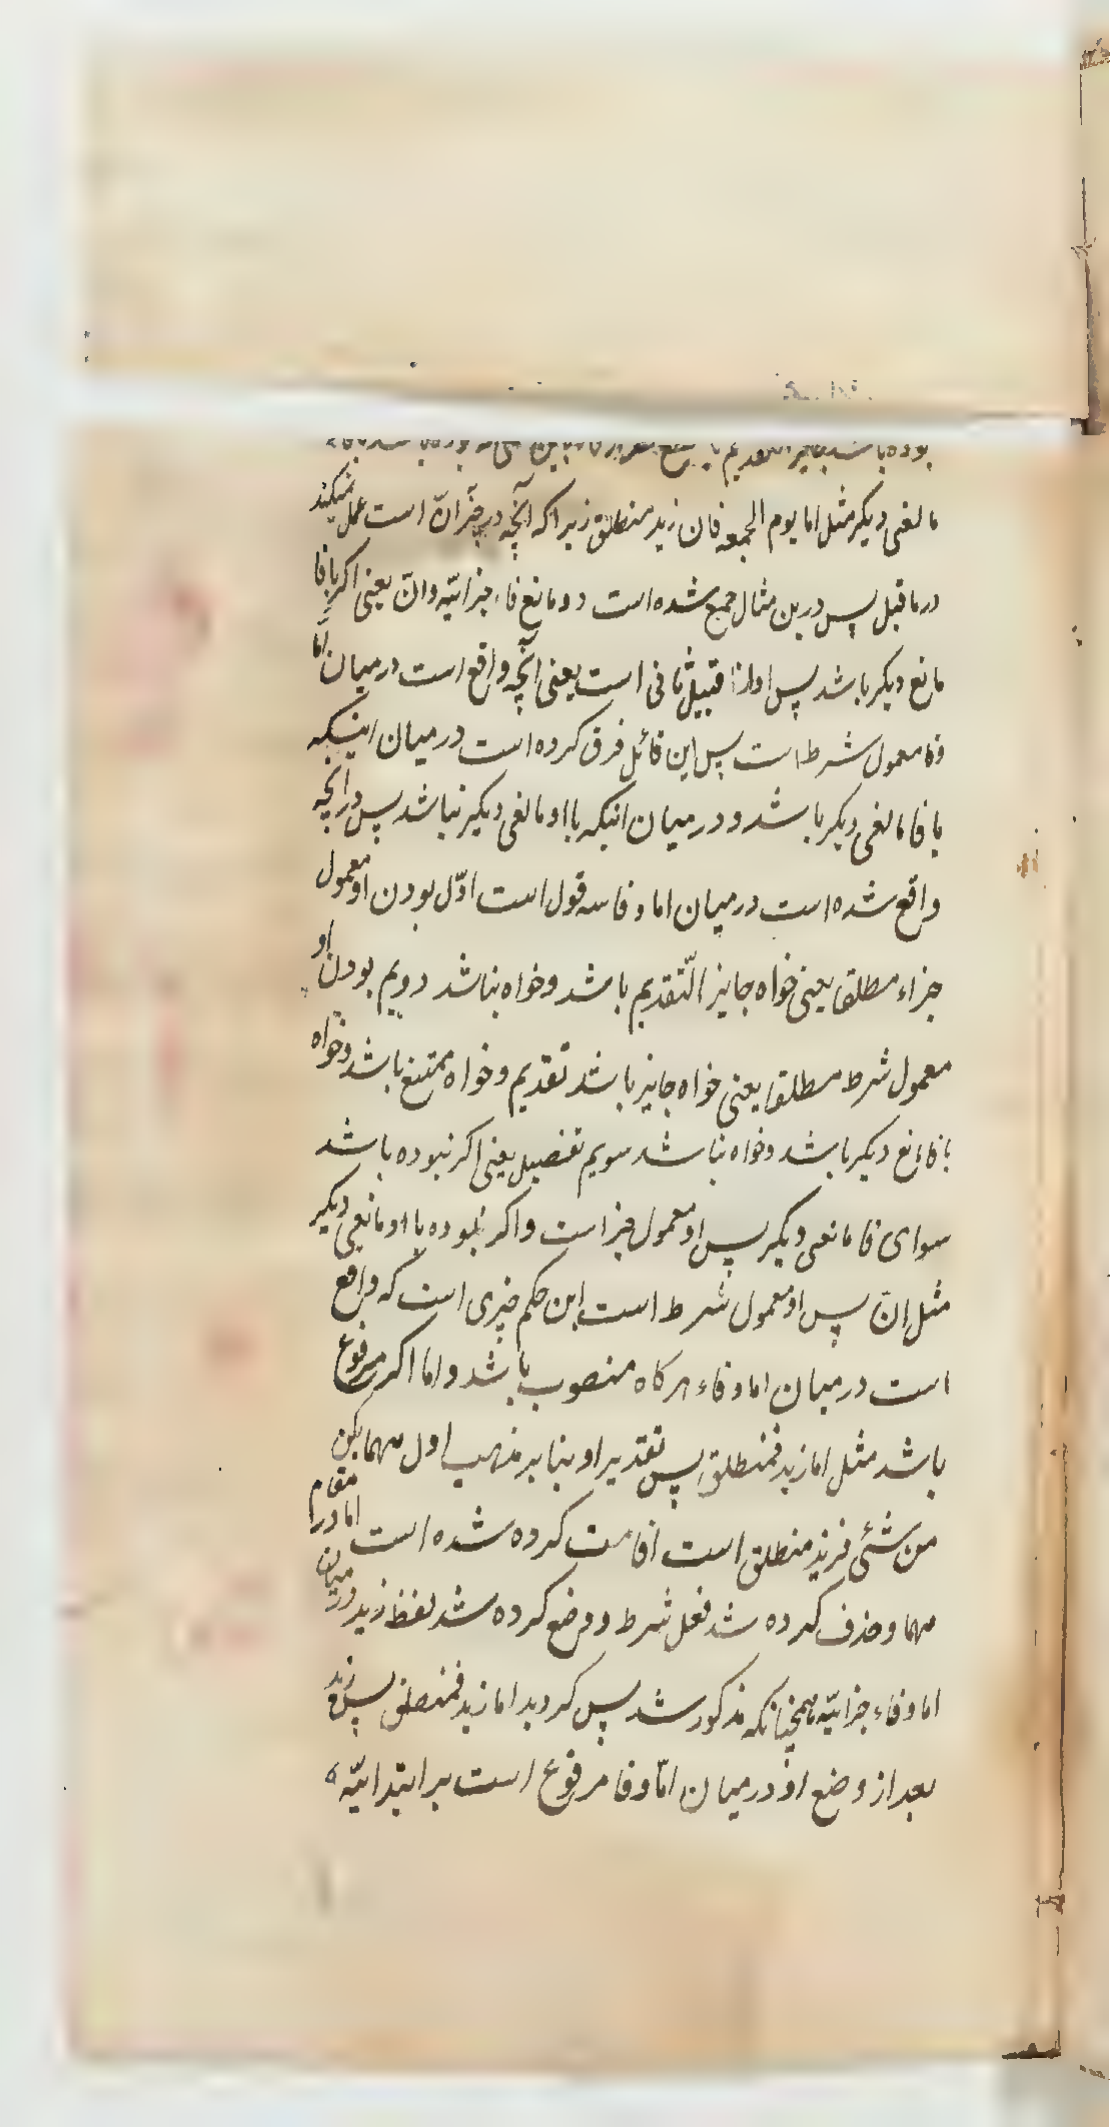 بوده باشد جایز التقدیم یا
مانعی دیگر مثل اما یوم الجمعه فان زید منطلق زیراکه آنچه در حیّز انّ است عمل نمیکند
در ماقبل پس درین مثال جمع شده است دو مانع فاء جزائیّه و انّ یعنی اگر با فا
مانع دیگر باشد پس او از قبیل ثانی است یعنی آنچه واقع است درمیان امّا
و فا معمول شرط است پس این قائل فرق کرده است درمیان اینکه
با فا مانعی دیگر باشد و درمیان انیکه با او مانعی دیگر نباشد پس در آنچه
واقع شده است درمیان اما و فا سه قول است اوّل بودن او معمول
جزاء مطلقا یعنی خواه جایز التّقدیم باشد و خواه نباشد دویم بودن او
معمول شرط مطلقا یعنی خواه جایز باشد تقدیم و خواه ممتنع باشد و خواه
با فا مانع دیگر باشد و خواه نباشد سویم تفصیل یعنی اگر نبوده باشد
سوای فا مانعی دیگر پس او معمول جزاست و اگر بوده با او مانعی دیگر
مثل انّ پس او معمول شرط است این حکم چیزی است که واقع
است درمیان اما و فاء هرگاه منصوب باشد و اما اگر مرفوع
باشد مثل اما زید فمنطلق پس تقدیر او بنابر مذهب اول مهما یکن
من شئی فزید منطلق است اقامت کرده شده است اما در مقام
مهما و حذف کرده شد فعل شرط و وضع کرده شد لفظ زید درمیان
اما و فاء جزائیّه همچنانکه مذکور شد پس گردید اما زید فمنطلق پس زید
بعد از وضع او درمیان امّا و فا مرفوع است بر ابتدائیّه